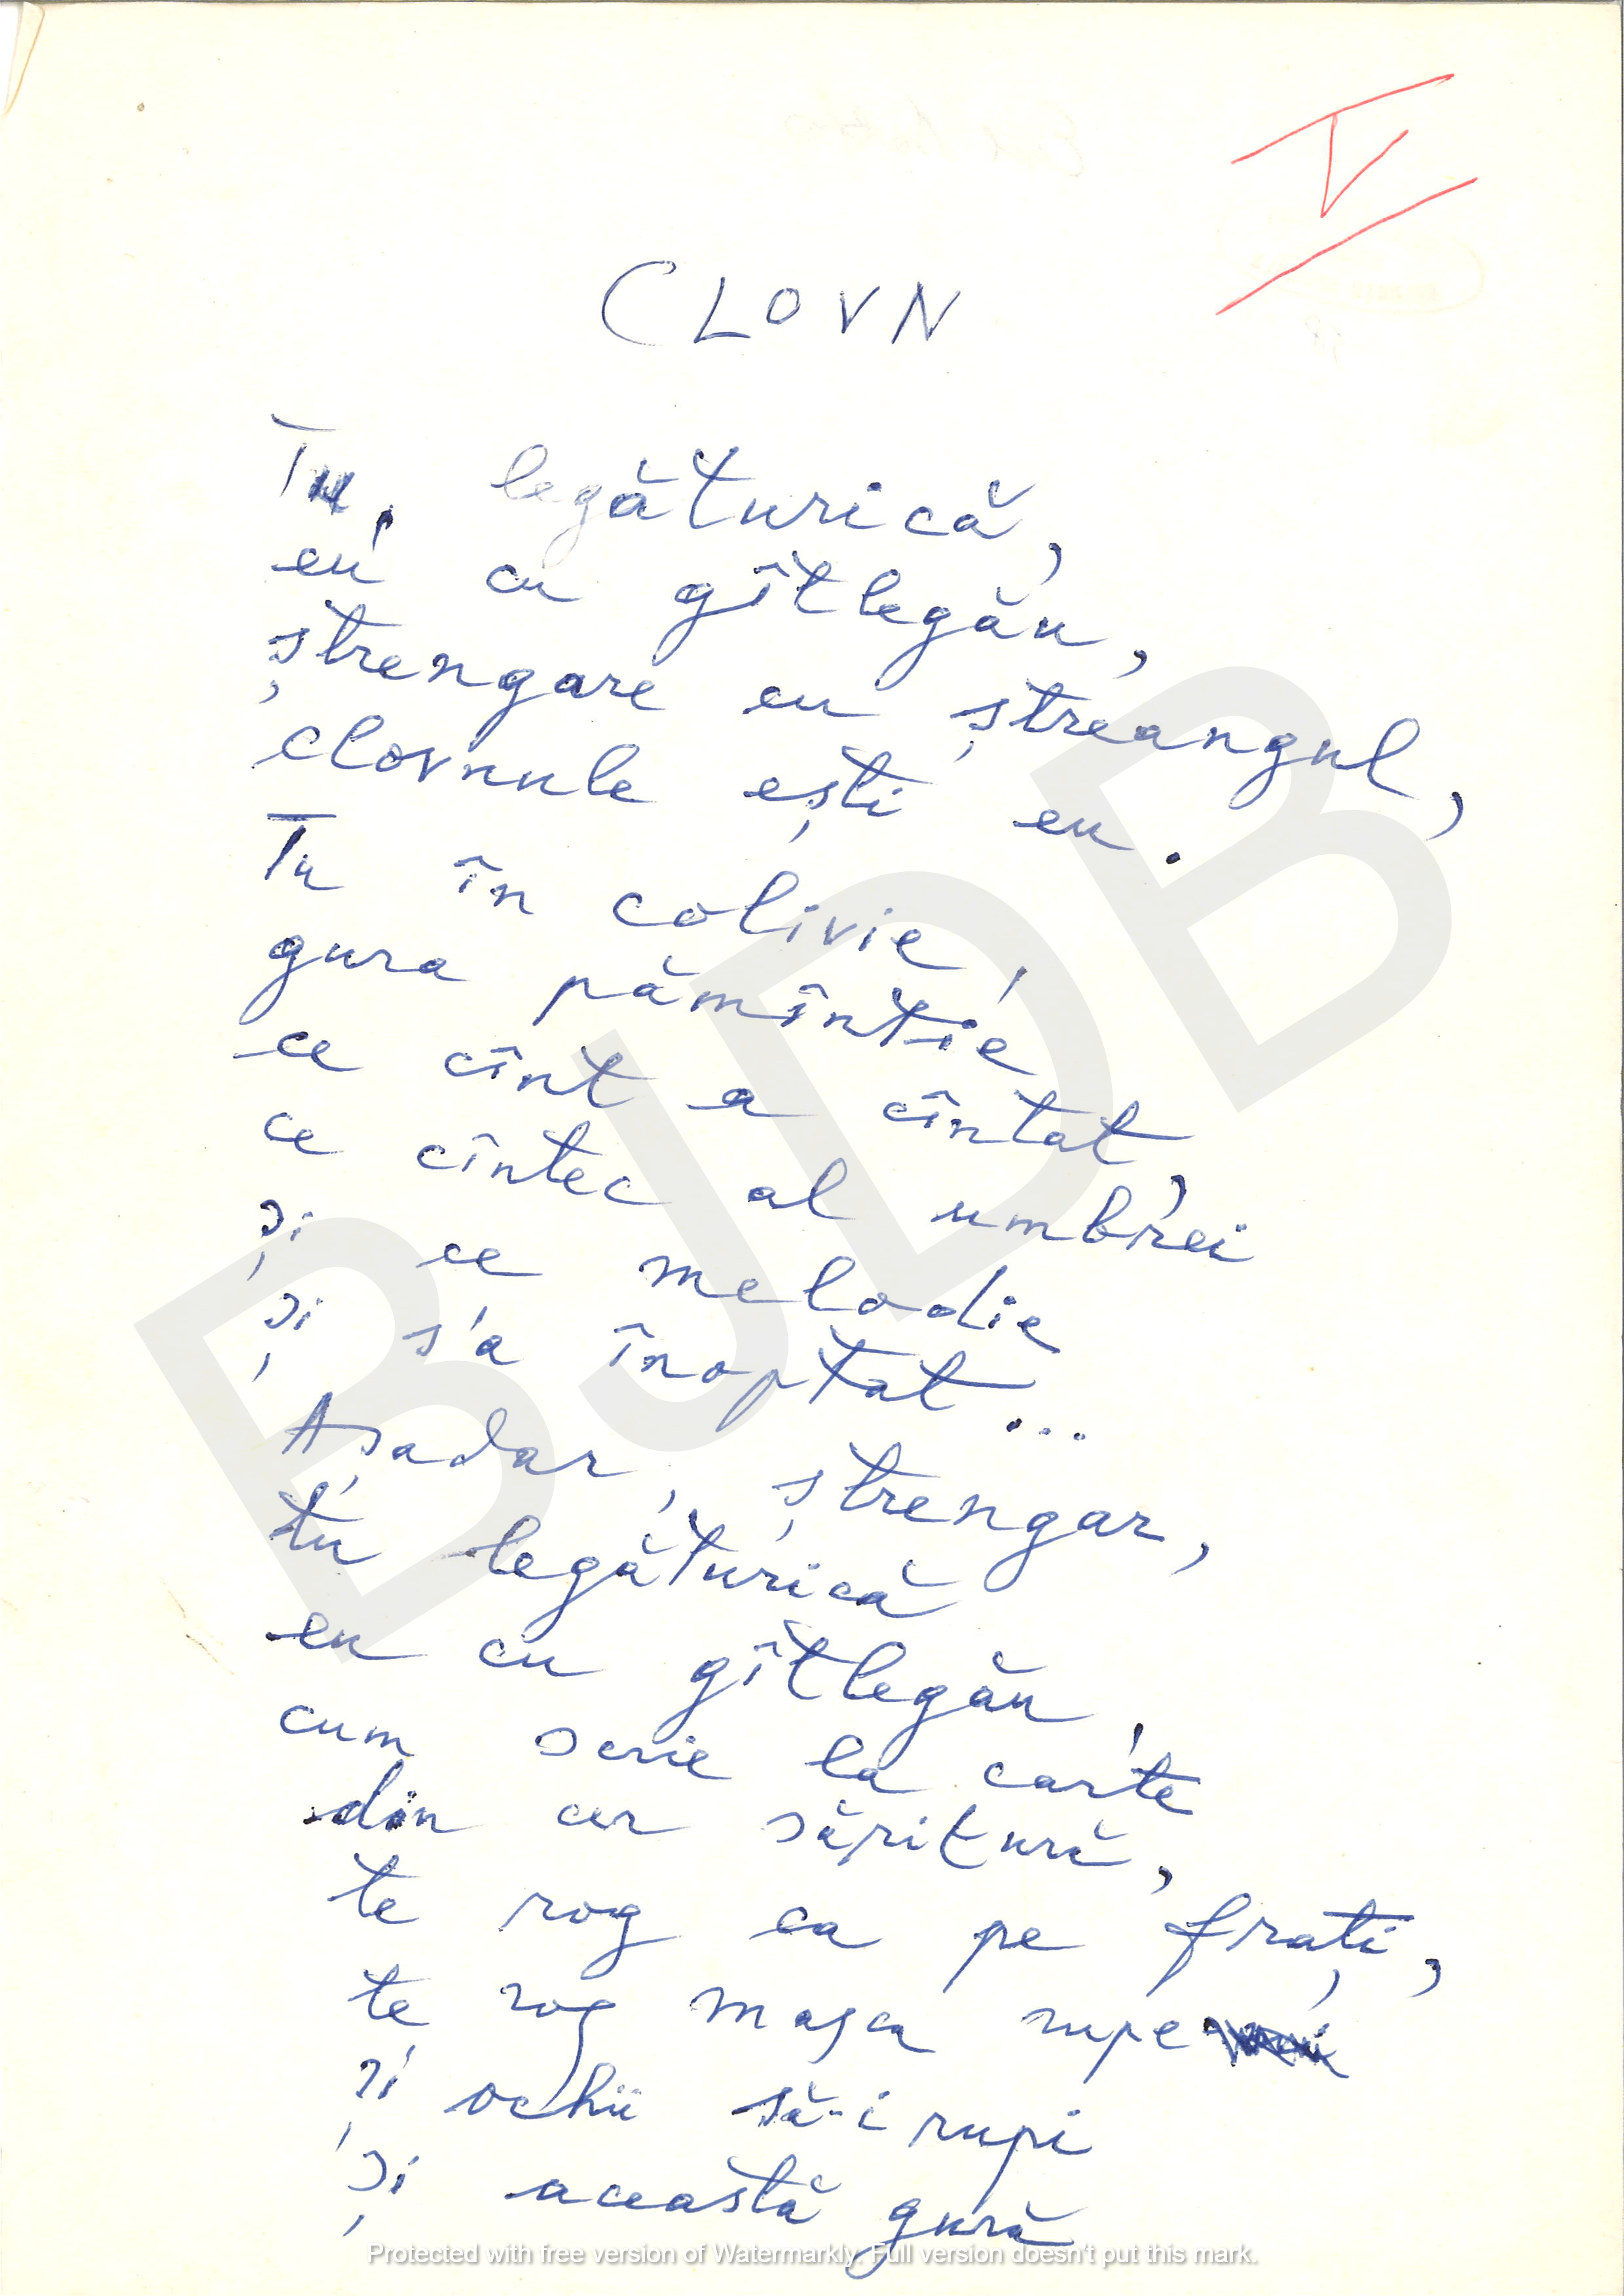 V
CLOVN
Tu, legăturică,
eu cu gîtlegău,
ștrengare eu ștreangul,
clovnule ești eu.
Tu în colivie,
gura pămîntie
ce cînt a cîntat,
ce cîntec al umbrei
și ce melodie
și s'a înoptat...
Așadar, ștrengar,
tu legăturică
eu cu gîtlegău,
cum scrie la carte
din cer săritură,
te rog ca pe frați,
te rog mașca rupe
și ochii să-i rupi
și această gură
BJDB
Protected with free version of Watermarkly. Full version doesn't put this mark.